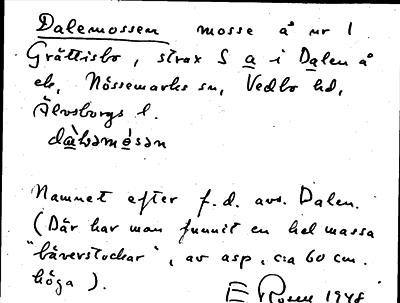 Dalemossen mosse å nr 1
Gröttisbo, strax S a i Dalen å
ek, Nössemarks sn, Vedbo hd,
Älvsborgs l.
Namnet efter f.d. avs. Dalen.
(Där har man funnit en hel massa
"bäverstockar", av asp, c:a 60 cm.
höga).
E Rosen 1948